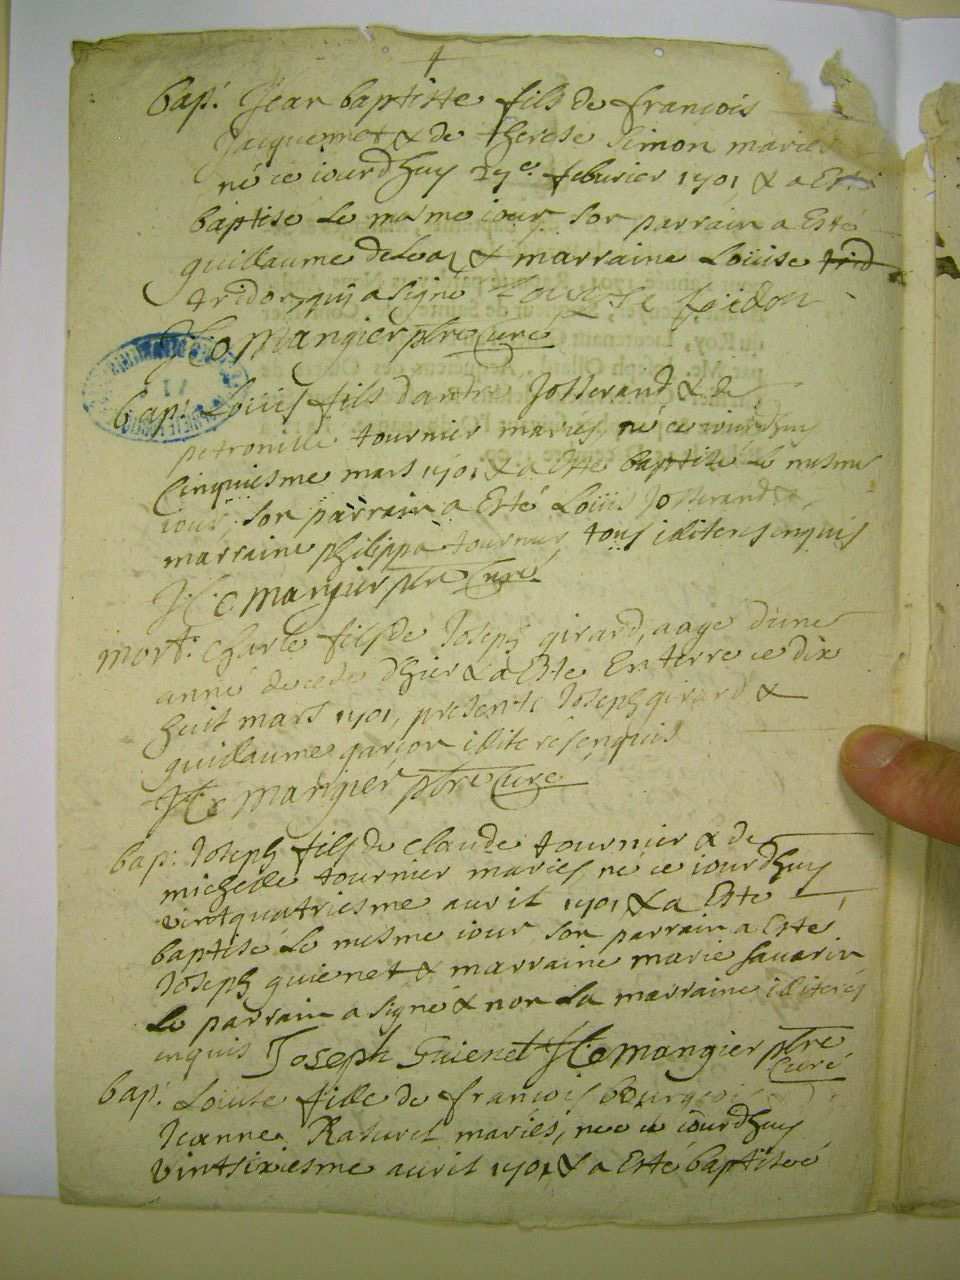 bap. Jean baptiste fils de françois
Jacquemet & de therese Simon mariés
né ce iourdhuy 27e. feburier 1701 & a Esté
baptisé Le mesme iour son parrain a Esté
guillaume & marraine Loüise trid
tridon qui a signe Louise tridon
Mangier pbre Curé
bap. Loüis fils dandré Josserand & de
petronille tournier mariés, né ce iourdhuy
Cinquiesme mars 1701 & a Esté baptisé Le mesme
iour, Son parrain a Esté Loüis Josserand &
marraine philippa tournier tous illiteres enquis
Mangier pbre Curé
mort. Charle fils de Joseph girard, aage dune
année decedé dhier & a Esté Enterré ce dix
huit mars 1701, presents Joseph girard &
guillaume garçon illiteres enquis
Mangier pbre Curé
bap. Joseph fils de claude tournier & de
michelle tournier mariés né ce iourdhuy
vintquatriesme auril 1701 & a Esté
baptisé Le mesme iour son parrain a Esté
Joseph guienet & marraine marie sauarin
Le parrain a signé & non La marraine illiteré
enquis Joseph Guienet Mangier pbre
Curé
bap. Loiuse fille de françois bourgeois
Jeanne Raturet mariés, née ce iourdhuy
vintsixiesme auril 1701 & a Esté baptiseé